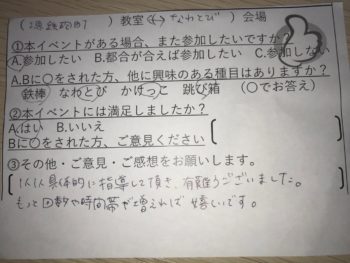 教室 なわとび 会場
①本イベントがある場合、また参加したいですか？
A.参加したい B.都合が合えば参加したい C.参加しない
A.Bに○をされた方、他に興味のある種目はありますか？
鉄棒 なわとび かけっこ 跳び箱 (○でお答え)
②本イベントには満足しましたか？
A.はい B.いいえ
Bに○をされた方、ご意見ください
③その他・ご意見・ご感想をお願いします。
1人1人具体的に指導して頂き、有難うございました。
もっと回数や時間帯が増えれば嬉しいです。